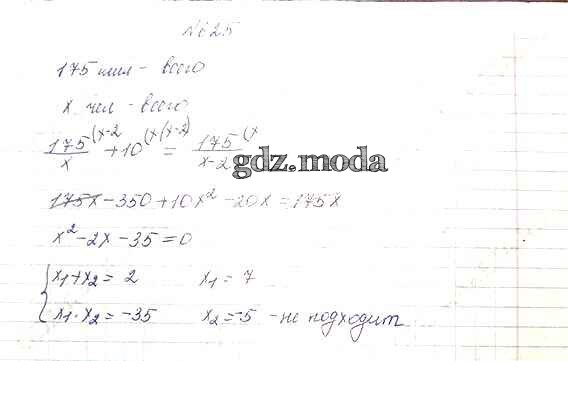 №625
175 шил - всего
x чел - всего
175/x (x-2 + 10 (x(x-2) = 175/x-2 (x
gdz.moda
175x - 350 + 10x² - 20x = 175x
x² - 2x - 35 = 0
x₁ + x₂ = 2 x₁ = 7
x₁ · x₂ = -35 x₂ = -5 - не подходит